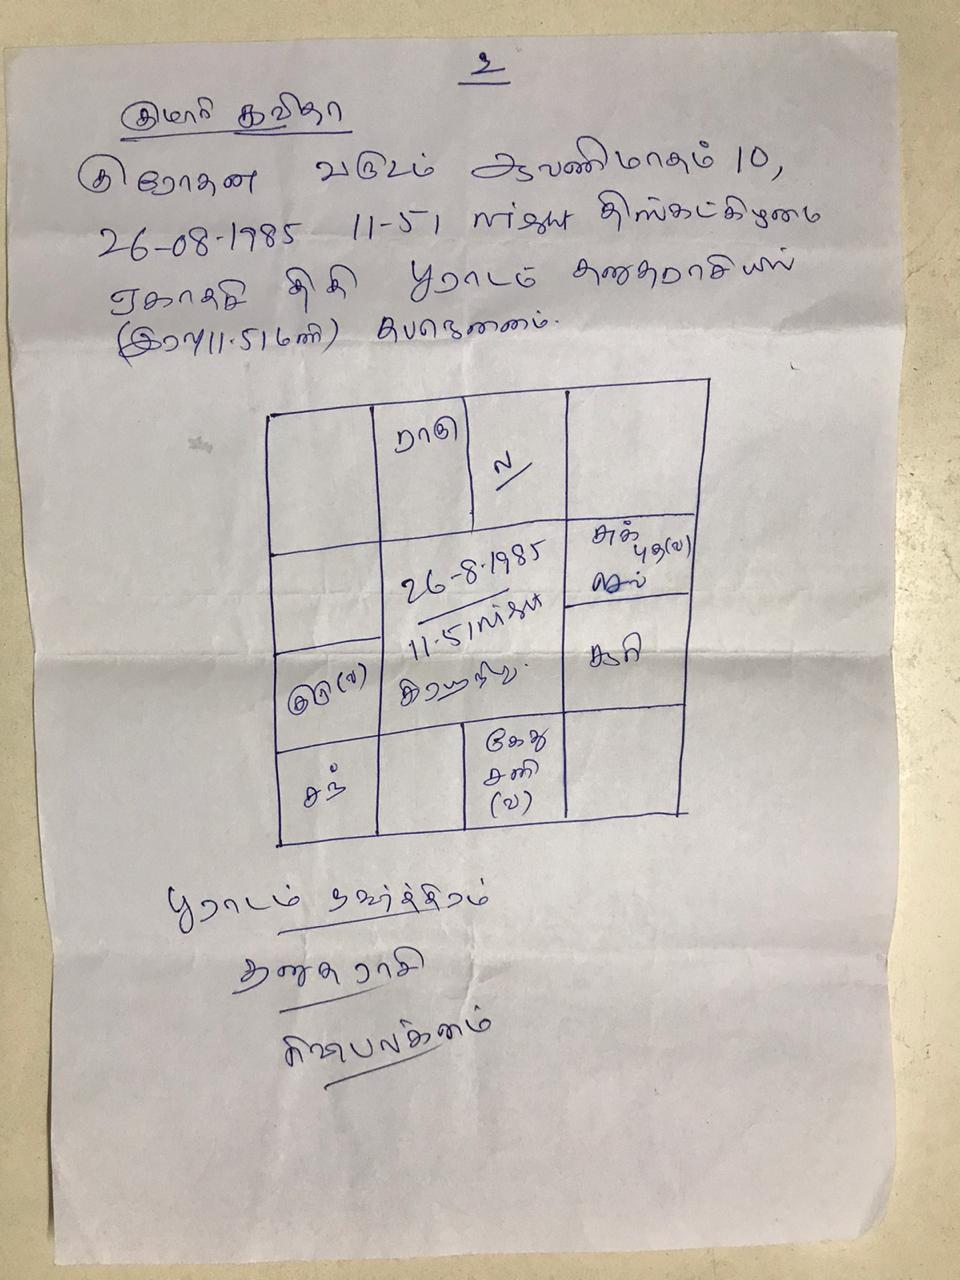 உ
குமாரி கவிதா
குரோதன வருடம் ஆவணிமாதம் 10,
26-08-1985 11-51 திங்கட்கிழமை
ஏகாதசி திதி பூராடம் தனுசுராசியில்
(இரவு 11.51 மணி) சுபஜெனனம்.
ராகு
ல
சுக்
புத(வ)
செவ்
26-8-1985
11-51
குரு(வ)
சூரி
கேது
சனி
(வ)
சந்
பூராடம் நட்சத்திரம்
தனுசு ராசி
ரிஷபலக்னம்